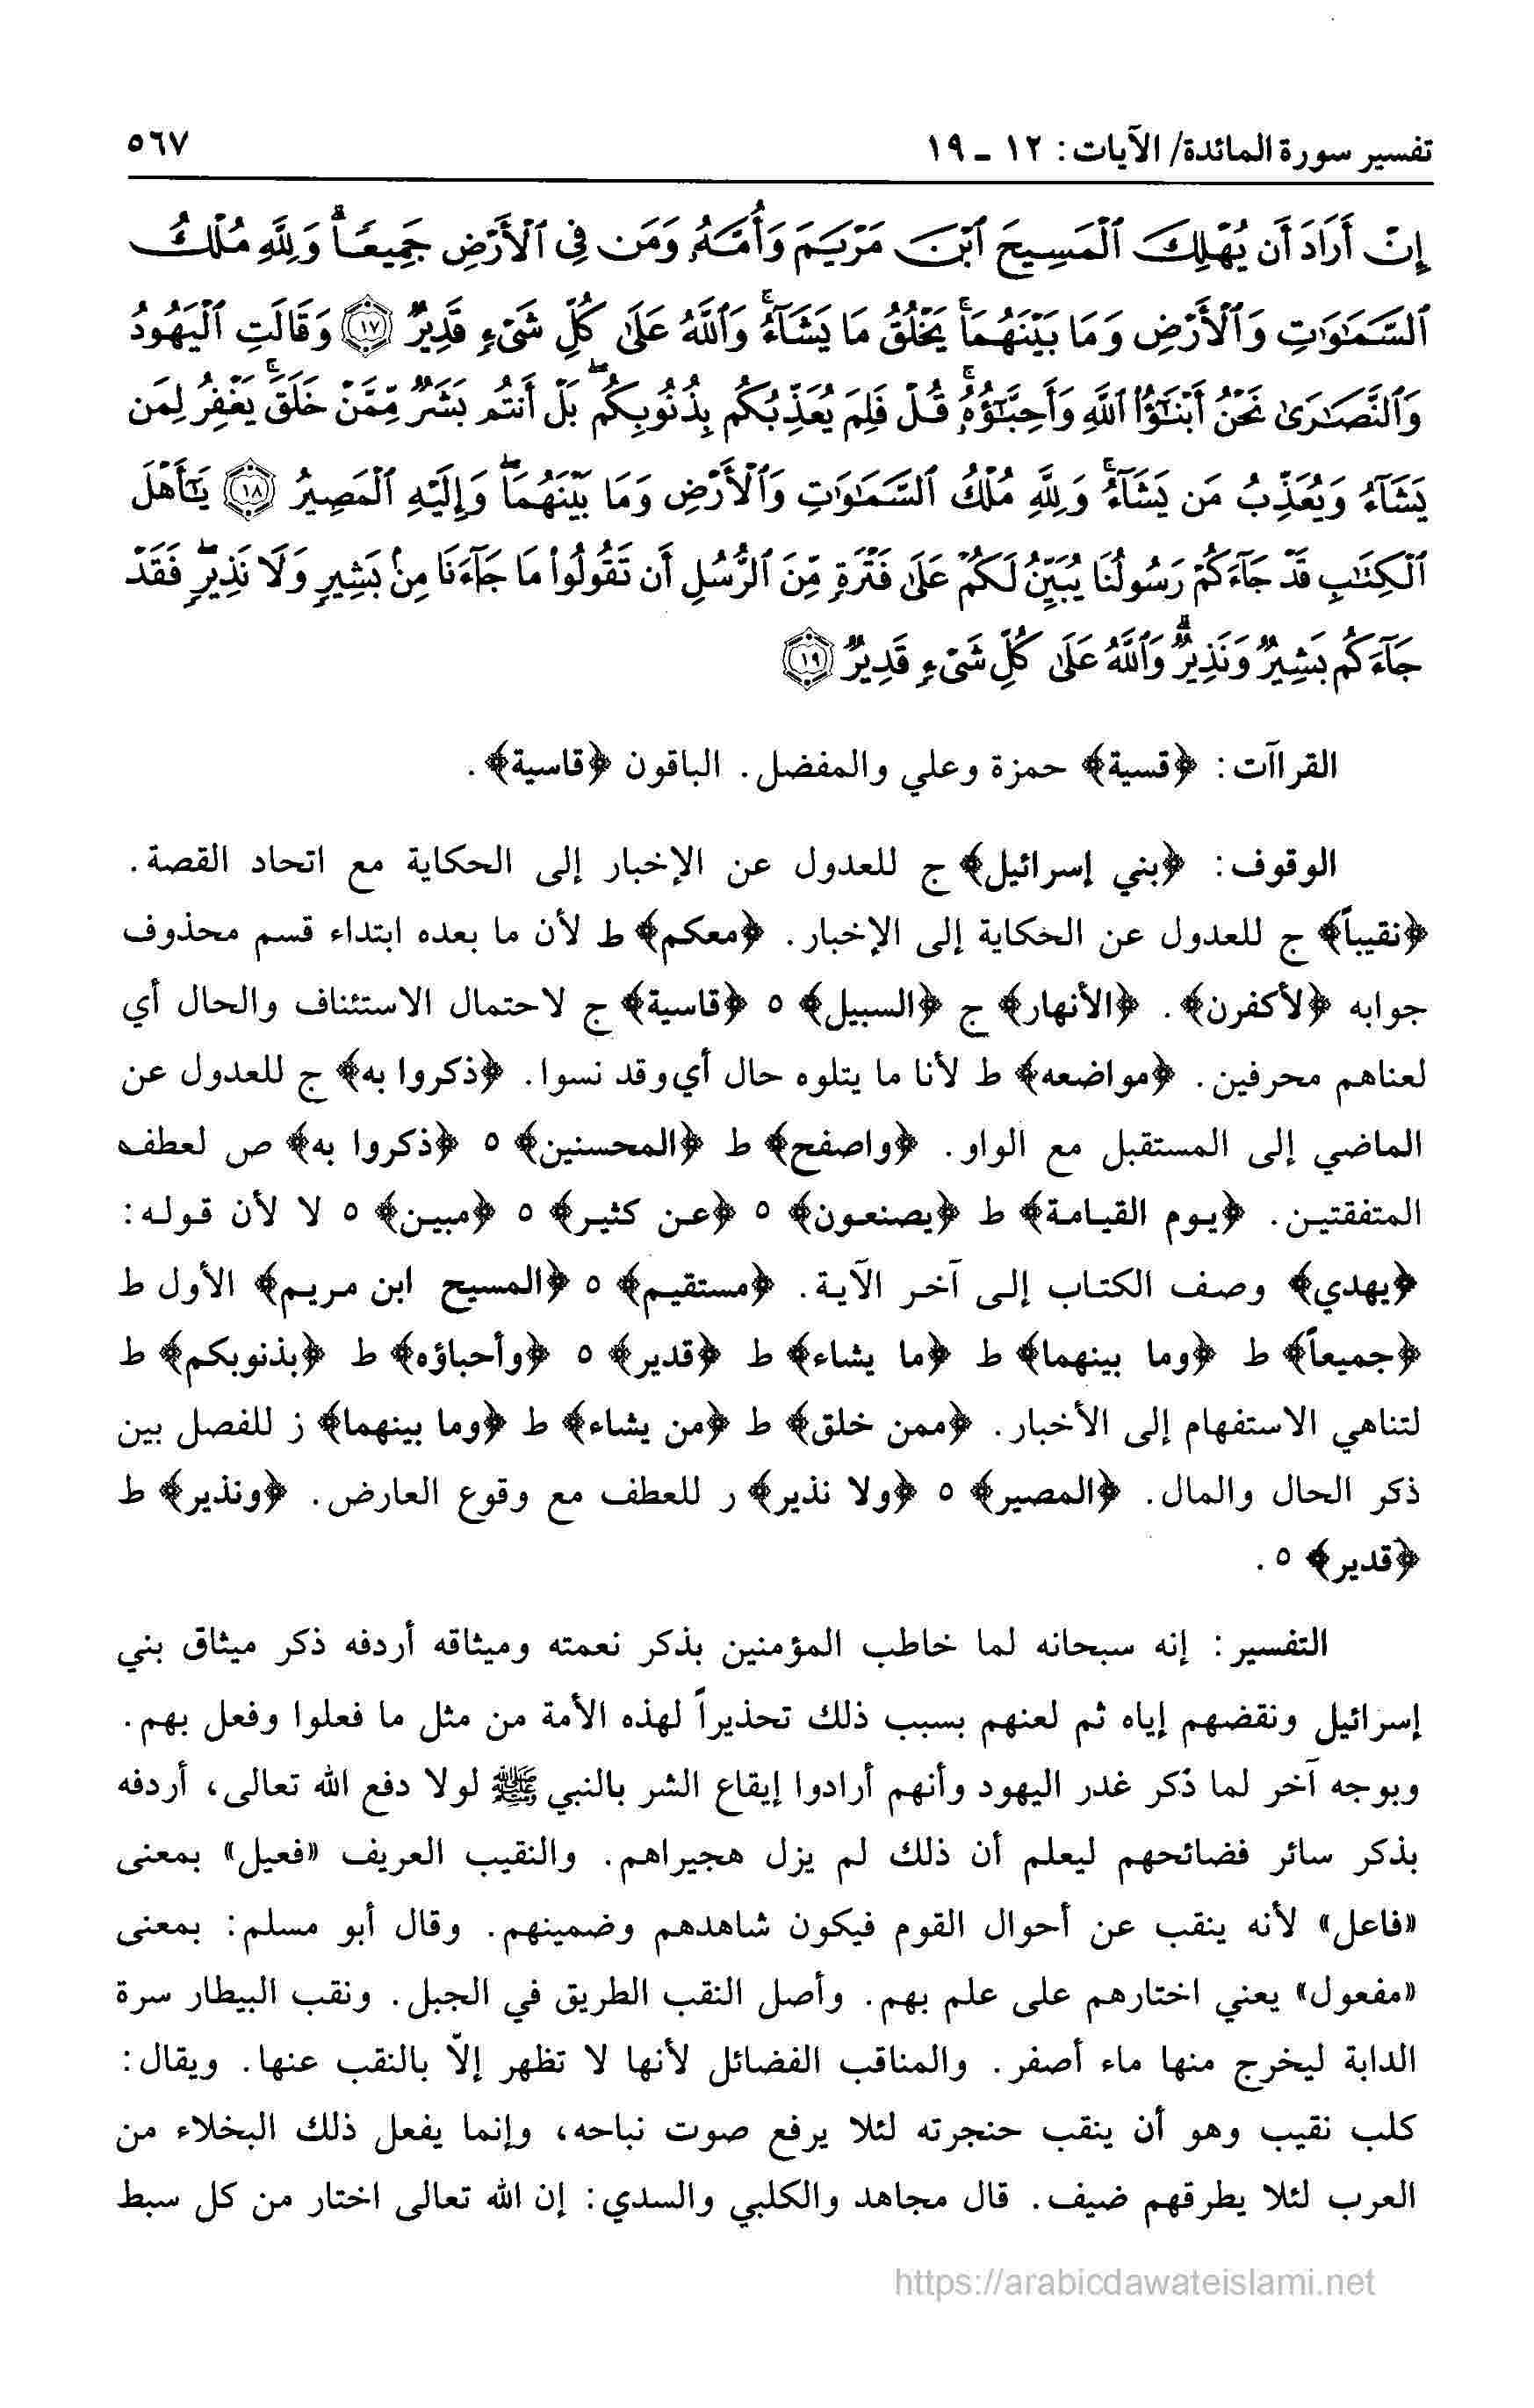 تفسير سورة المائدة/ الآيات: ١٢ ـ ١٩ ٥٦٧
إِنْ أَرَادَ أَن يُهْلِكَ ٱلْمَسِيحَ ٱبْنَ مَرْيَمَ وَأُمَّهُۥ وَمَن فِى ٱلْأَرْضِ جَمِيعًاۗ وَلِلَّهِ مُلْكُ
ٱلسَّمَٰوَٰتِ وَٱلْأَرْضِ وَمَا بَيْنَهُمَاۚ يَخْلُقُ مَا يَشَآءُۚ وَٱللَّهُ عَلَىٰ كُلِّ شَىْءٍ قَدِيرٌ ١٧ وَقَالَتِ ٱلْيَهُودُ
وَٱلنَّصَٰرَىٰ نَحْنُ أَبْنَٰٓؤُا۟ ٱللَّهِ وَأَحِبَّٰٓؤُهُۥۚ قُلْ فَلِمَ يُعَذِّبُكُم بِذُنُوبِكُمۖ بَلْ أَنتُم بَشَرٌ مِّمَّنْ خَلَقَۚ يَغْفِرُ لِمَن
يَشَآءُ وَيُعَذِّبُ مَن يَشَآءُۚ وَلِلَّهِ مُلْكُ ٱلسَّمَٰوَٰتِ وَٱلْأَرْضِ وَمَا بَيْنَهُمَاۖ وَإِلَيْهِ ٱلْمَصِيرُ ١٨ يَٰٓأَهْلَ
ٱلْكِتَٰبِ قَدْ جَآءَكُمْ رَسُولُنَا يُبَيِّنُ لَكُمْ عَلَىٰ فَتْرَةٍ مِّنَ ٱلرُّسُلِ أَن تَقُولُوا۟ مَا جَآءَنَا مِنۢ بَشِيرٍ وَلَا نَذِيرٍۖ فَقَدْ
جَآءَكُم بَشِيرٌ وَنَذِيرٌۗ وَٱللَّهُ عَلَىٰ كُلِّ شَىْءٍ قَدِيرٌ ١٩
القراآت: ﴿قسية﴾ حمزة وعلي والمفضل. الباقون ﴿قاسية﴾.
الوقوف: ﴿بني إسرائيل﴾ ج للعدول عن الإخبار إلى الحكاية مع اتحاد القصة.
﴿نقيباً﴾ ج للعدول عن الحكاية إلى الإخبار. ﴿معكم﴾ ط لأن ما بعده ابتداء قسم محذوف
جوابه ﴿لأكفرن﴾. ﴿الأنهار﴾ ج ﴿السبيل﴾ ٥ ﴿قاسية﴾ ج لاحتمال الاستئناف والحال أي
لعناهم محرفين. ﴿مواضعه﴾ ط لأنا ما يتلوه حال أي وقد نسوا. ﴿ذكروا به﴾ ج للعدول عن
الماضي إلى المستقبل مع الواو. ﴿واصفح﴾ ط ﴿المحسنين﴾ ٥ ﴿ذكروا به﴾ ص لعطف
المتفقتين. ﴿يوم القيامة﴾ ط ﴿يصنعون﴾ ٥ ﴿عن كثير﴾ ٥ ﴿مبين﴾ ٥ لا لأن قوله:
﴿يهدي﴾ وصف الكتاب إلى آخر الآية. ﴿مستقيم﴾ ٥ ﴿المسيح ابن مريم﴾ الأول ط
﴿جميعاً﴾ ط ﴿وما بينهما﴾ ط ﴿ما يشاء﴾ ط ﴿قدير﴾ ٥ ﴿وأحباؤه﴾ ط ﴿بذنوبكم﴾ ط
لتناهي الاستفهام إلى الأخبار. ﴿ممن خلق﴾ ط ﴿من يشاء﴾ ط ﴿وما بينهما﴾ ز للفصل بين
ذكر الحال والمال. ﴿المصير﴾ ٥ ﴿ولا نذير﴾ ر للعطف مع وقوع العارض. ﴿ونذير﴾ ط
﴿قدير﴾ ٥.
التفسير: إنه سبحانه لما خاطب المؤمنين بذكر نعمته وميثاقه أردفه ذكر ميثاق بني
إسرائيل ونقضهم إياه ثم لعنهم بسبب ذلك تحذيراً لهذه الأمة من مثل ما فعلوا وفعل بهم.
وبوجه آخر لما ذكر غدر اليهود وأنهم أرادوا إيقاع الشر بالنبي ﷺ لولا دفع الله تعالى، أردفه
بذكر سائر فضائحهم ليعلم أن ذلك لم يزل هجيراهم. والنقيب العريف «فعيل» بمعنى
«فاعل» لأنه ينقب عن أحوال القوم فيكون شاهدهم وضمينهم. وقال أبو مسلم: بمعنى
«مفعول» يعني اختارهم على علم بهم. وأصل النقب الطريق في الجبل. ونقب البيطار سرة
الدابة ليخرج منها ماء أصفر. والمناقب الفضائل لأنها لا تظهر إلاّ بالنقب عنها. ويقال:
كلب نقيب وهو أن ينقب حنجرته لئلا يرفع صوت نباحه، وإنما يفعل ذلك البخلاء من
العرب لئلا يطرقهم ضيف. قال مجاهد والكلبي والسدي: إن الله تعالى اختار من كل سبط
https://arabicdawateislami.net